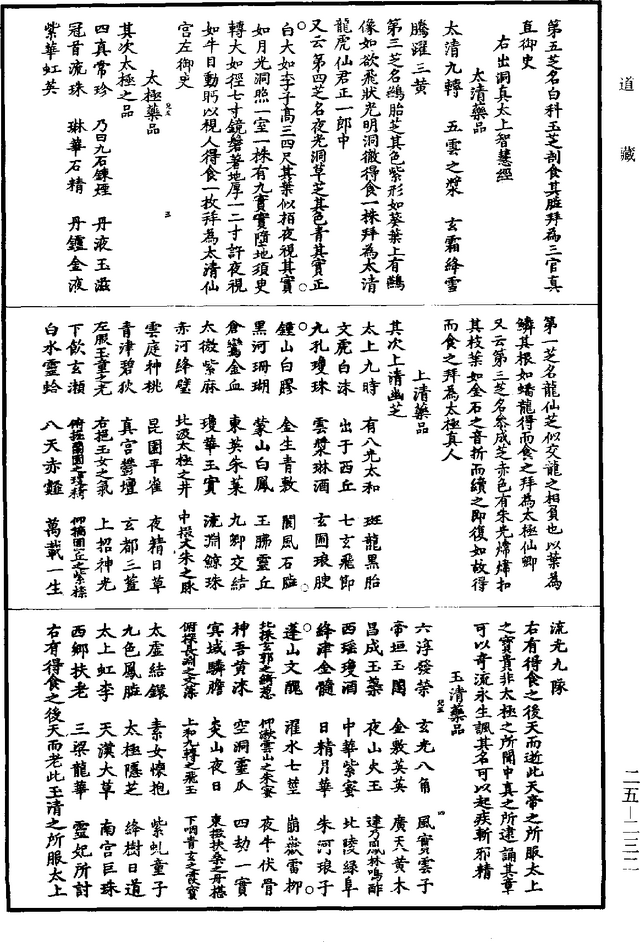 道藏
第五芝名白科玉芝剖食其䐈拜為三官真
直御史
右出洞真太上智慧經
太清藥品
太清九轉 五雲之漿 玄霜絳雪
騰躍三黃
第三芝名鷀胎芝其色紫形如葵葉上有鷀
像如欲飛狀光明洞徹得食一株拜為太清
龍虎仙君正一郎中
又云第四芝名夜光洞草芝其色青其實正
白大如李子高三四尺其葉似栢夜視其實
如月光洞照一室一株有九實實墮地須史
轉大如徑七寸鏡盤著地厚一二寸許夜視
如牛目動眄以視人得食一枚拜為太清仙
宮左御史
太極藥品
三
其次太極之品
四真常珍 乃曰九石鍊煙 丹液玉滋
冠首流珠 琳華石精 丹鑪金液
紫華虹英
第一芝名龍仙芝似交龍之相負也以葉為
鱗其根如蟠龍得而食之拜為太極仙卿
又云第三芝名參成芝赤色有朱光煒煒扣
其枝葉如金石之音折而續之即復如故得
而食之拜為太極真人
上清藥品
其次上清幽芝
太上九時 有八光太和 斑龍黑胎
文虎白沫 出于西丘 七玄飛節
九孔瓊珠 雲漿琳酒 玄圃琅腴
鍾山白膠 金生青敷 閬風石䐈
黑河珊瑚 蒙山白鳳 玉腸靈丘
倉鸞金血 東英朱菓 九卿交結
太微紫麻 瓊華玉實 流淵鯨珠
赤河絳璧 北汲太極之井 中掇大朱之脉
雲庭神桃 崑園平雀 夜精日草
青津碧狄 真宮鬱壇 玄都三蓋
左服玉童之光 右挹玉女之氣 上招神光
下飲玄瀨 俯掘蘭園之瓊精 仰摘圓丘之紫㮈
白水靈蛤 八天赤䪥 萬載一生
流光九隊
右有得食之後天而逝此天帝之所服太上
之寶貴非太極之所聞中真之所逮誦其章
可以奇流永生諷其名可以起疾斬邪精
玉清藥品
四
六淳發榮 玄光八角 風實雲子
帝垣玉閣 金敷英英 廣天黃木
昌成玉蘂 夜山火玉 逮乃鳳林鳴酢
西瑶瓊酒 中華紫蜜 北陵緑阜
絳津金髓 日精月華 朱河琅子
蓬山文醜 濯水七莖 崩嶽電柳
北採玄郭之綺蔥 仰漱雲山之朱蜜 夜牛伏骨
神吾黃沫 空洞靈瓜 四劫一實
賓城驎膽 炎山夜日 東掇扶桑之丹椹
俯探長淵之文藻 上和九轉之飛玉 下咽青玄之霞寶
太虛結鏍 素女懷抱 紫虬童子
九色鳳腦 太極隱芝 絳樹日道
太上虹李 天漢大草 南宮巨珠
西鄉扶老 三梁龍華 靈妃所討
右有得食之後天而老此玉清之所服太上
二五—二三二